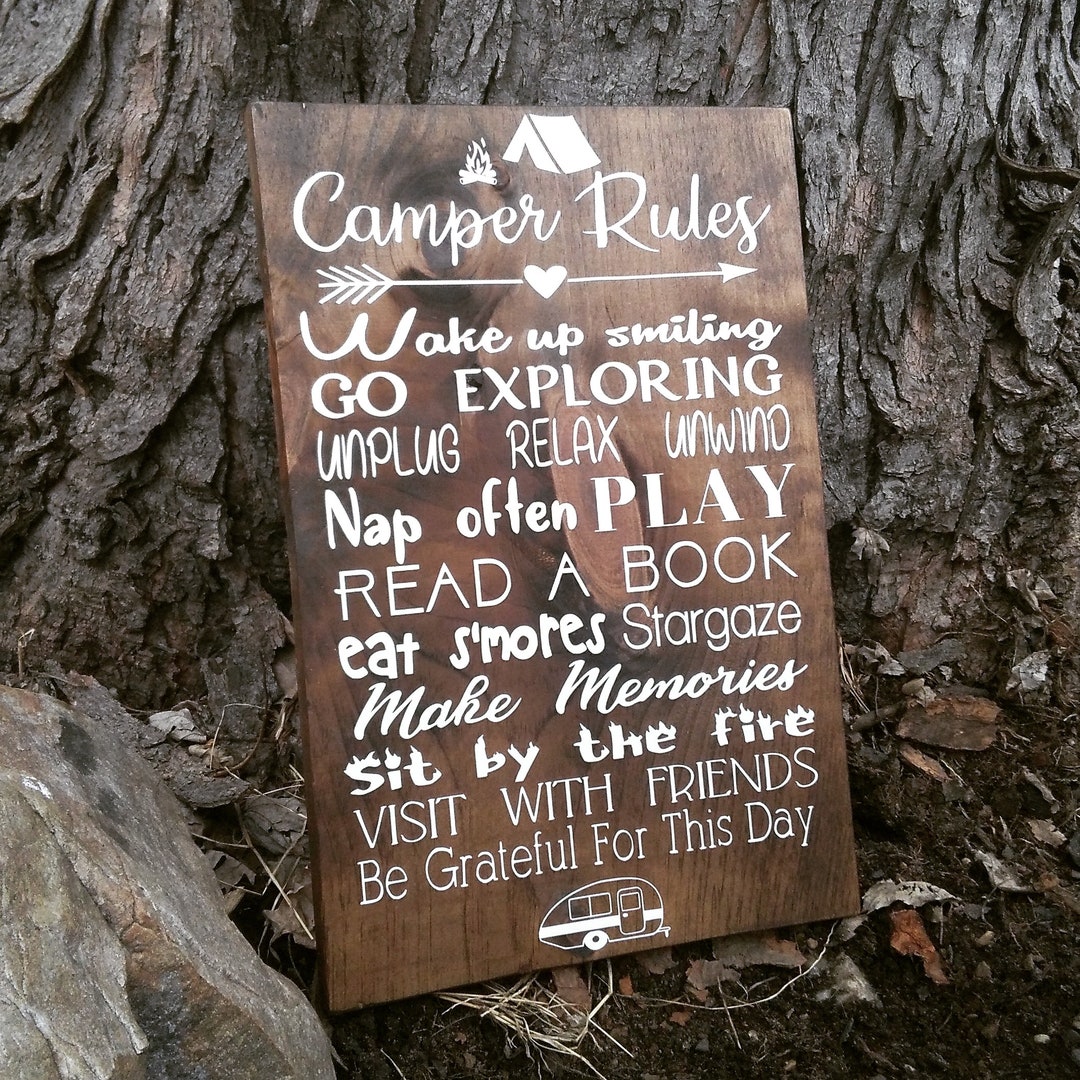 Camper Rules
Wake up smiling
GO EXPLORING
UNPLUG RELAX UNWIND
Nap often PLAY
READ A BOOK
eat s'mores Stargaze
Make Memories
Sit by the fire
VISIT WITH FRIENDS
Be Grateful For This Day